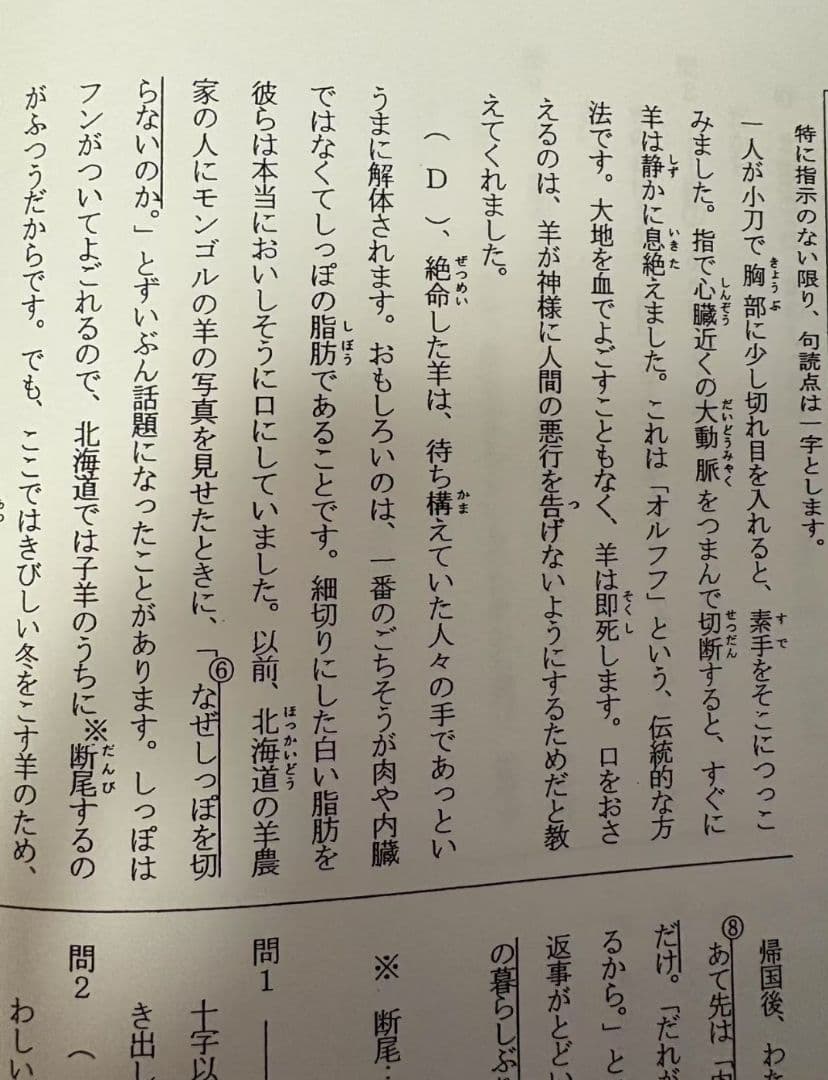 特に指示のない限り、句読点は一字とします。
一人が小刀で胸部に少し切れ目を入れると、素手をそこにつっこ
みました。指で心臓近くの大動脈をつまんで切断すると、すぐに
羊は静かに息絶えました。これは「オルフフ」という、伝統的な方
法です。大地を血でよごすこともなく、羊は即死します。口をおさ
えるのは、羊が神様に人間の悪行を告げないようにするためだと教
えてくれました。
（　Ｄ　）、絶命した羊は、待ち構えていた人々の手であっとい
うまに解体されます。おもしろいのは、一番のごちそうが肉や内臓
ではなくてしっぽの脂肪であることです。細切りにした白い脂肪を
彼らは本当においしそうに口にしていました。以前、北海道の羊農
家の人にモンゴルの羊の写真を見せたときに、「⑥なぜしっぽを切
らないのか。」とずいぶん話題になったことがあります。しっぽは
フンがついてよごれるので、北海道では子羊のうちに※断尾するの
がふつうだからです。でも、ここではきびしい冬をこす羊のため、
帰国後、わた
⑧あて先は「内
だけ。「だれが
るから。」と
返事がとどい
の暮らしぶり
※　断尾…
問１
十字以
き出し
問２　（
わしい